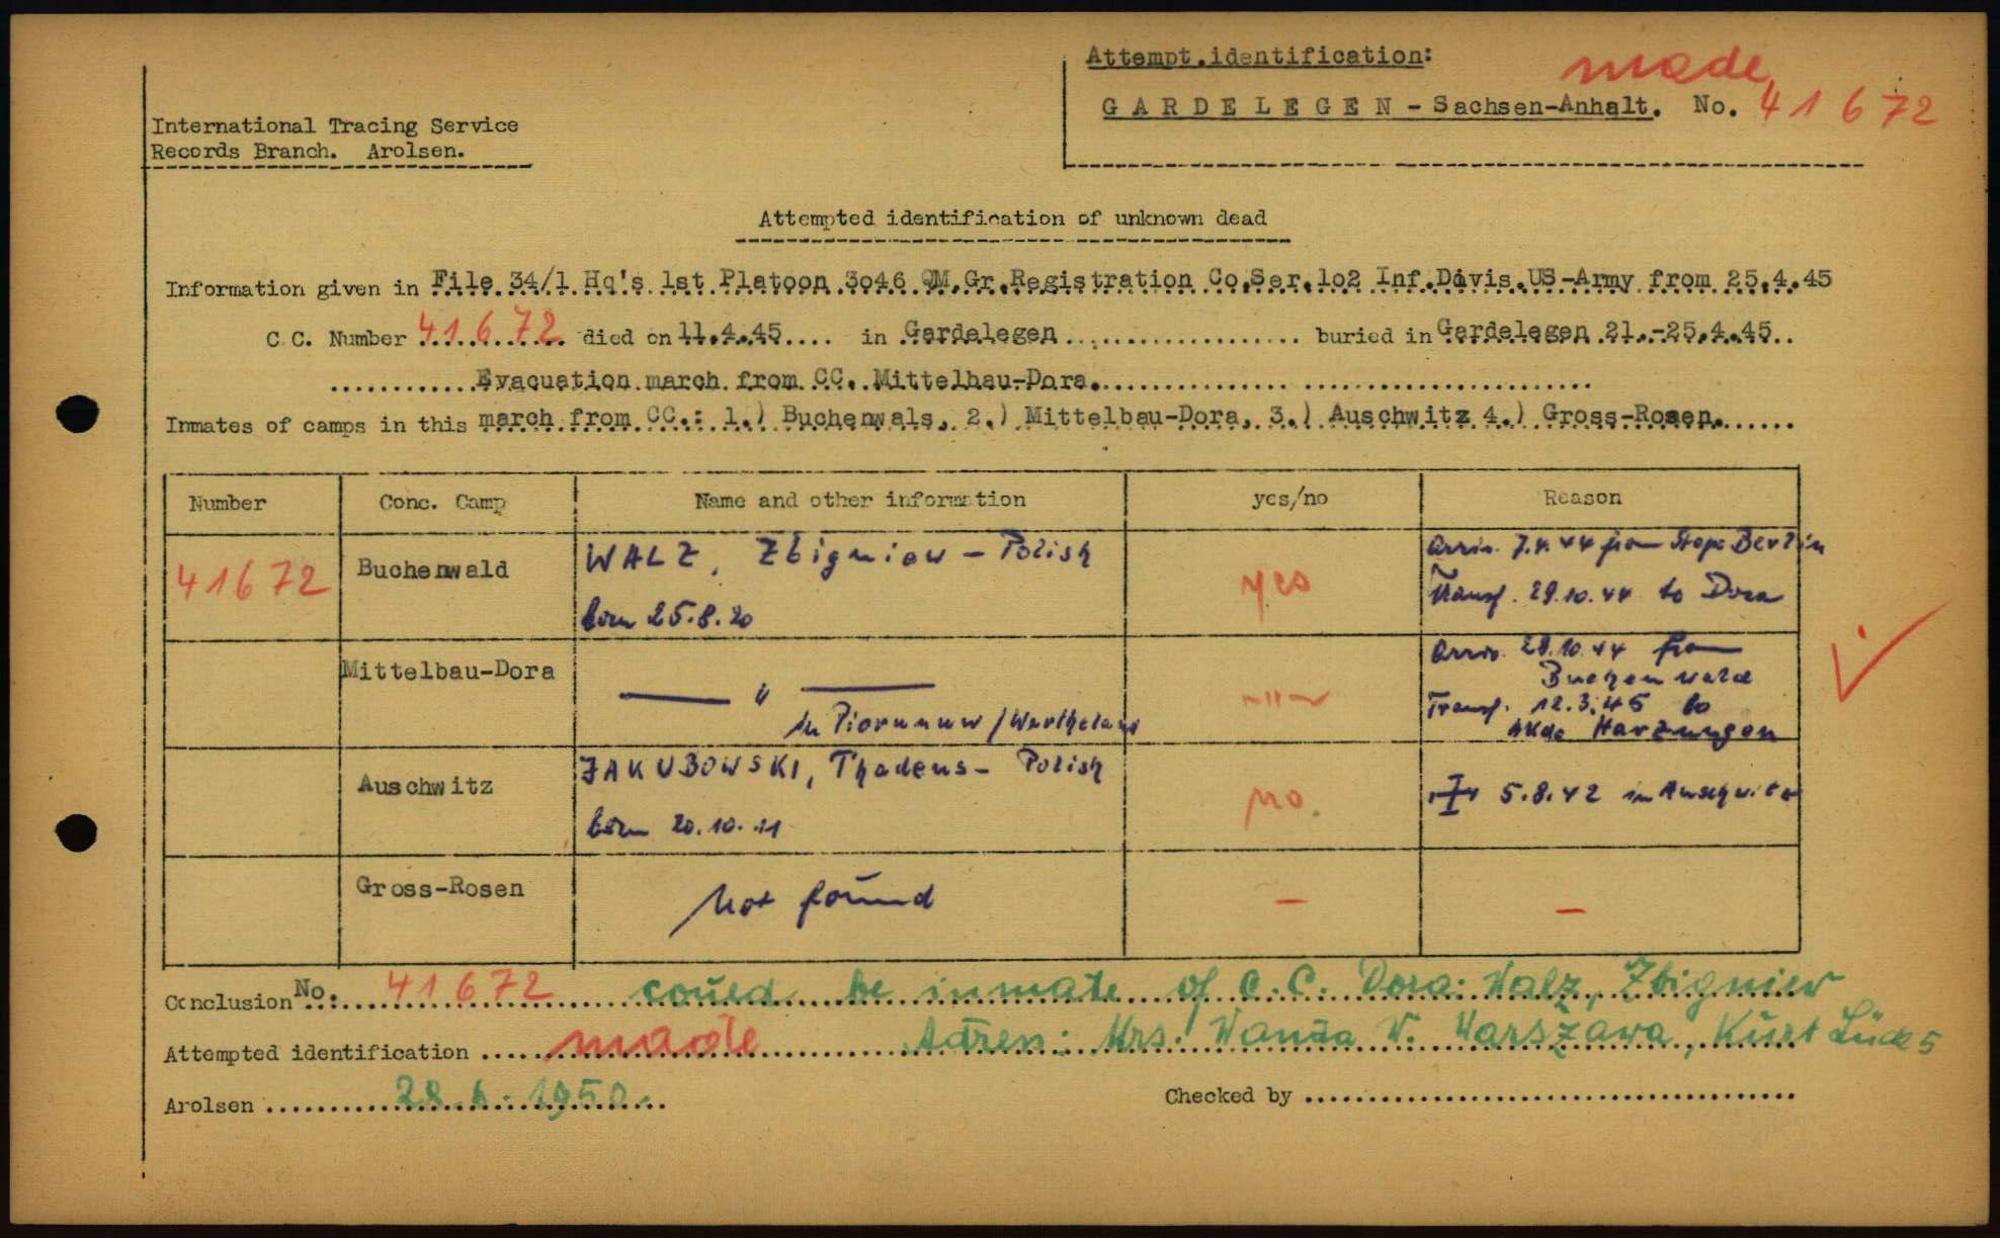 Attempt.identification:
made
GARDELEGEN - Sachsen-Anhalt. No. 41672
International Tracing Service
Records Branch. Arolsen.
Attempted identification of unknown dead
Information given in File 34/1 Hq's 1st Platoon 3o46 QM.Gr.Registration Co.Ser.1o2 Inf.Davis.US-Army from 25.4.45
C.C. Number 41672 died on 11.4.45.... in Gardelegen buried in Gardelegen 21.-25.4.45..
Evacuation march from CC. Mittelbau-Dora.
Inmates of camps in this march from CC.: 1.) Buchenwals, 2.) Mittelbau-Dora, 3.) Auschwitz 4.) Gross-Rosen.
Number Conc. Camp Name and other information yes/no Reason
41672 Buchenwald WALZ, Zbigniew - Polish yes Arriv. 7.4.44 from Stapo Berlin
born 25.8.20 Transf. 29.10.44 to Dora
Mittelbau-Dora — " — —"— Arriv. 29.10.44 from
Buchenwald
in /Wartheland Transf. 12.3.45 to
AKdo Harzungen
Auschwitz JAKUBOWSKI, Thadeus - Polish no. 5.8.42 in Auschwitz
born 20.10.11
Gross-Rosen Not found — —
Conclusion No.: 41672 coued be inmate of C.C. Dora: Walz, Zbigniew
Attempted identification made Adren: Mrs. Wanda W. Warszawa, Kurt Lück 5
Arolsen 28.6.1950. Checked by